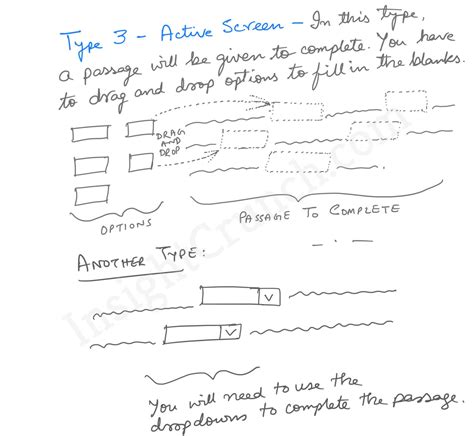 Type 3 - Active Screen - In this type,
a passage will be given to complete. You have
to drag and drop options to fill in the blanks.
DRAG
AND
DROP
OPTIONS
PASSAGE TO COMPLETE
ANOTHER TYPE:
You will need to use the
dropdowns to complete the passage.
InsightCrunch.com